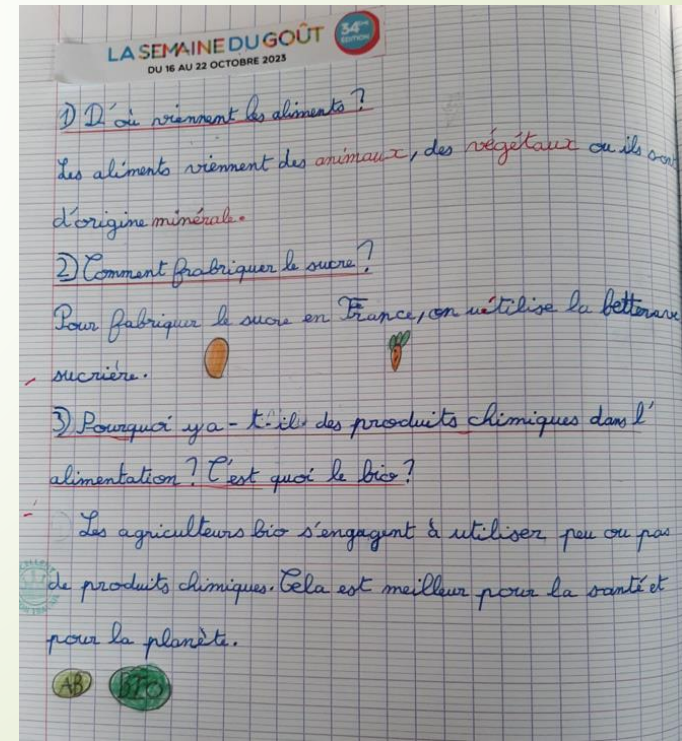 LA SEMAINE DU GOÛT 34ÈME ÉDITION
DU 16 AU 22 OCTOBRE 2023
1) D'où viennent les aliments ?
Les aliments viennent des animaux, des végétaux ou ils sont
d'origine minérale.
2) Comment frabriquer le sucre ?
Pour fabriquer le sucre en France, on utilise la betterave
sucrière.
3) Pourquoi y a-t-il des produits chimiques dans l'
alimentation ? C'est quoi le bio ?
Les agriculteurs bio s'engagent à utiliser peu ou pas
de produits chimiques. Cela est meilleur pour la santé et
pour la planète.
AB BIO